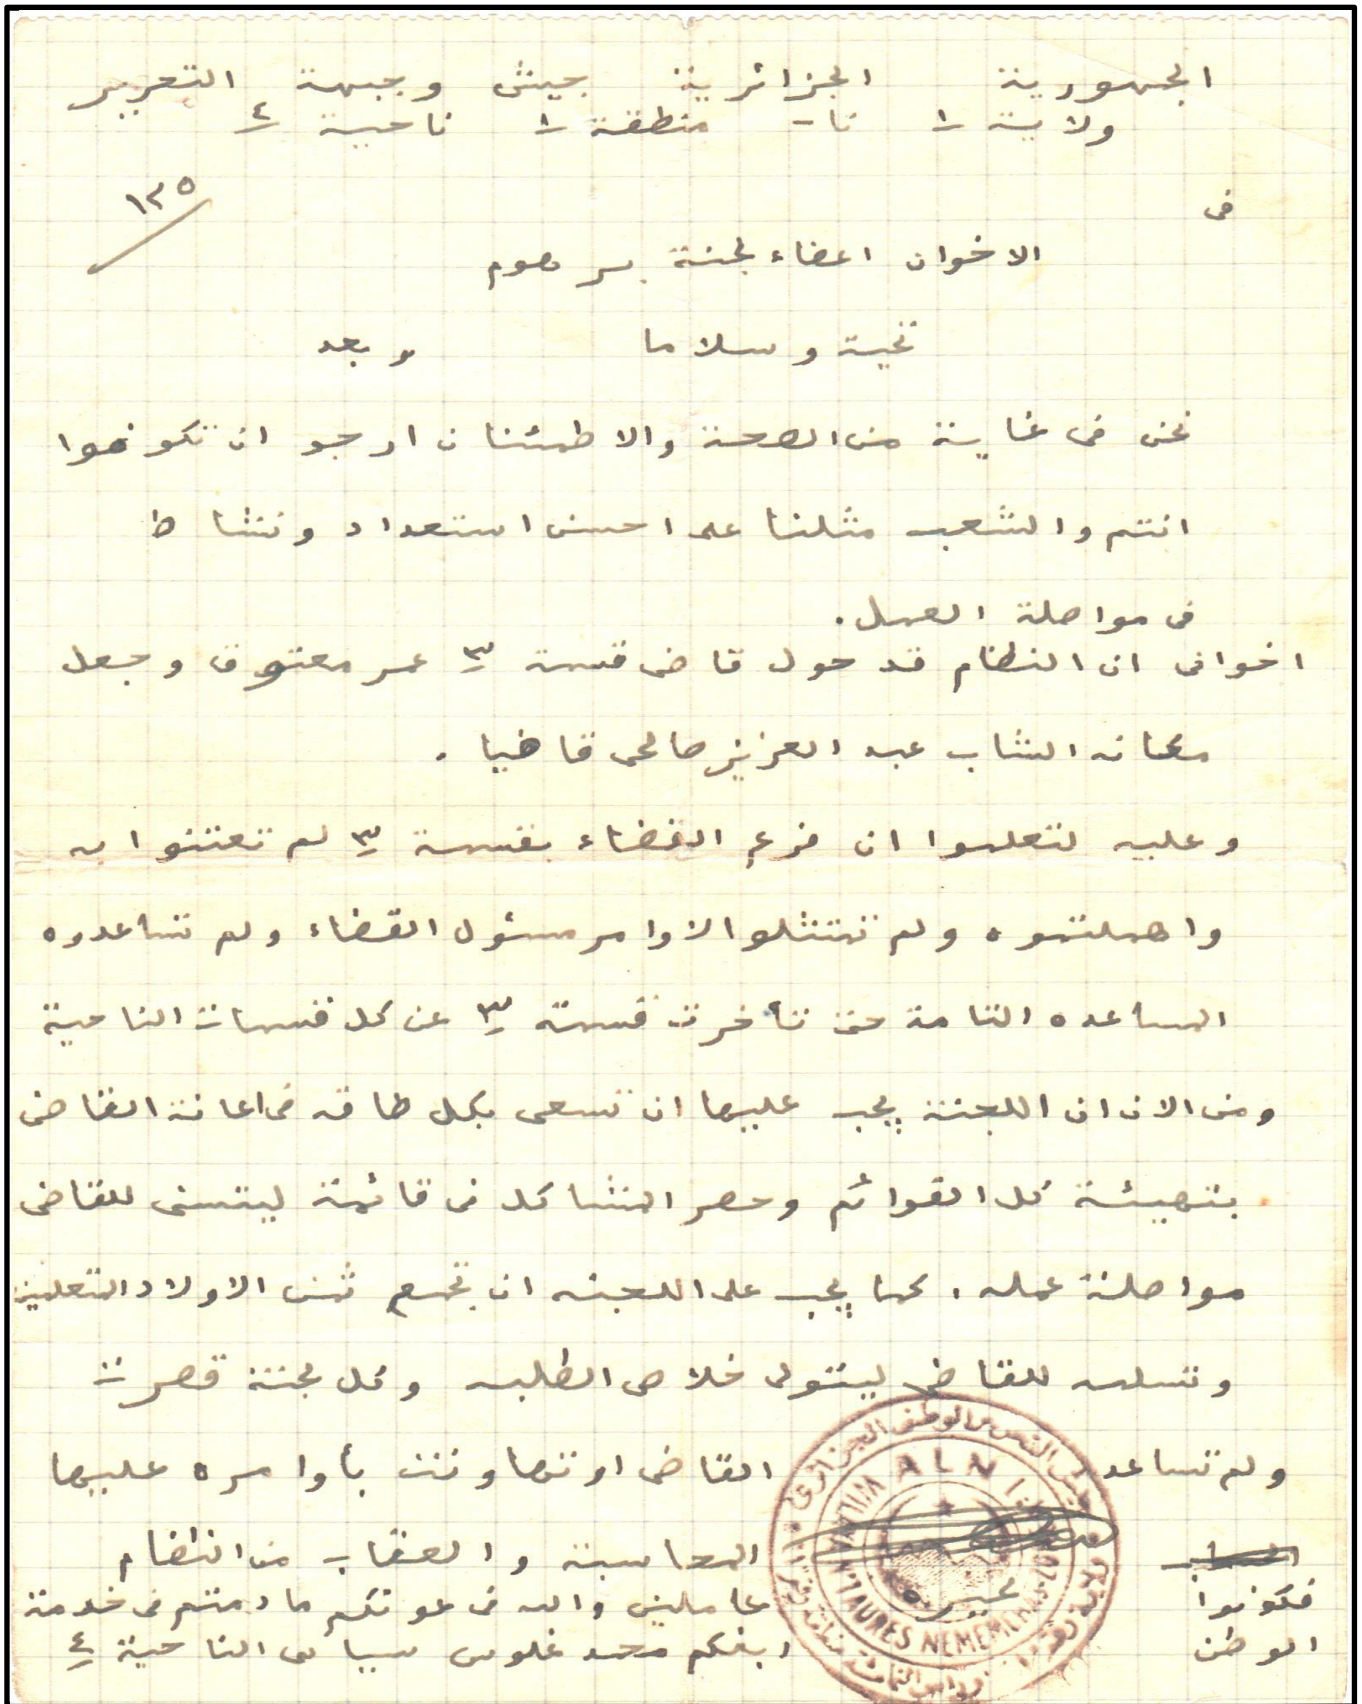 الجمهورية الجزائرية جيش وجبهة التحرير
ولاية ١ نا- منطقة ١ ناحية ٤
١٣٥
فى
الاخوان اعضاء لجنة
تحية وسلاما وبعد
نحن فى غاية من الصحة والاطمئنان ارجو ان تكونوا
انتم والشعب مثلنا على احسن استعداد ونشاط
فى مواصلة العمل.
اخوانى ان النظام قد حول قاضى قسمة ٣ عمر معتوق وجعل
مكانه الشاب عبد العزيز صالحى قاضيا.
وعليه لتعلموا ان فرع القضاء بقسمة ٣ لم تعتنوا به
واهملتموه ولم تمتثلوا لاوامر مسئول القضاء ولم تساعدوه
المساعده التامة حتى تأخرت قسمة ٣ عن كل قسمات الناحية
ومن الان ان اللجنة يجب عليها ان تسعى بكل طاقه فى اعانة القاضى
بتهيئة كل القوائم وحصر المشاكل فى قائمة ليتسنى للقاضى
مواصلة عمله. كما يجب على اللجنه ان تجمع ثمن الاولاد المتعلمين
وتسلمه للقاضى ليتولى خلاص الطلبه وكل لجنة قصرت
ولم تساعد القاضى او تهاونت بأوامره عليها
المحاسبة والعقاب من النظام
فكونوا عاملين والله فى عونكم مادمتم فى خدمة
الوطن ابنكم محمد غلوس سياسى الناحية ٤
جيش التحرير الوطنى الجزائرى
A L N
WILAYA N°1 AURES NEMEMCHAS